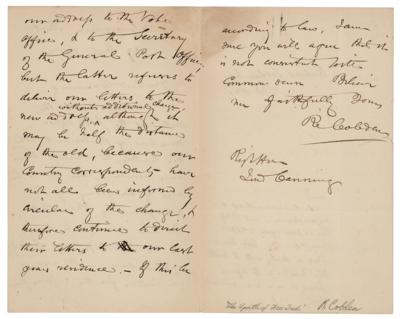 our address to the Vote
Office, & to the Secretary
of the General Post Office,
but the latter refuses to
deliver our letters to the
without additional charge
new address, although it
may be half the distance
of the old, because our
Country Correspondents have
not all been informed by
circular of the change, &
therefore continue to direct
their letters to our last
years residence. – If this be
according to law, I am
sure you will agree that it
is not consistent with
common sense Believe
me faithfully Yours
R Cobden
Right Hon
Lord Canning
"The Apostle of Free Trade" R. Cobden